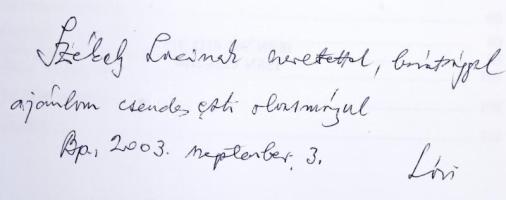 Székely Lacinak szeretettel, barátsággal
ajánlom csendes esti olvasmányul
Bp, 2003. szeptember 3.